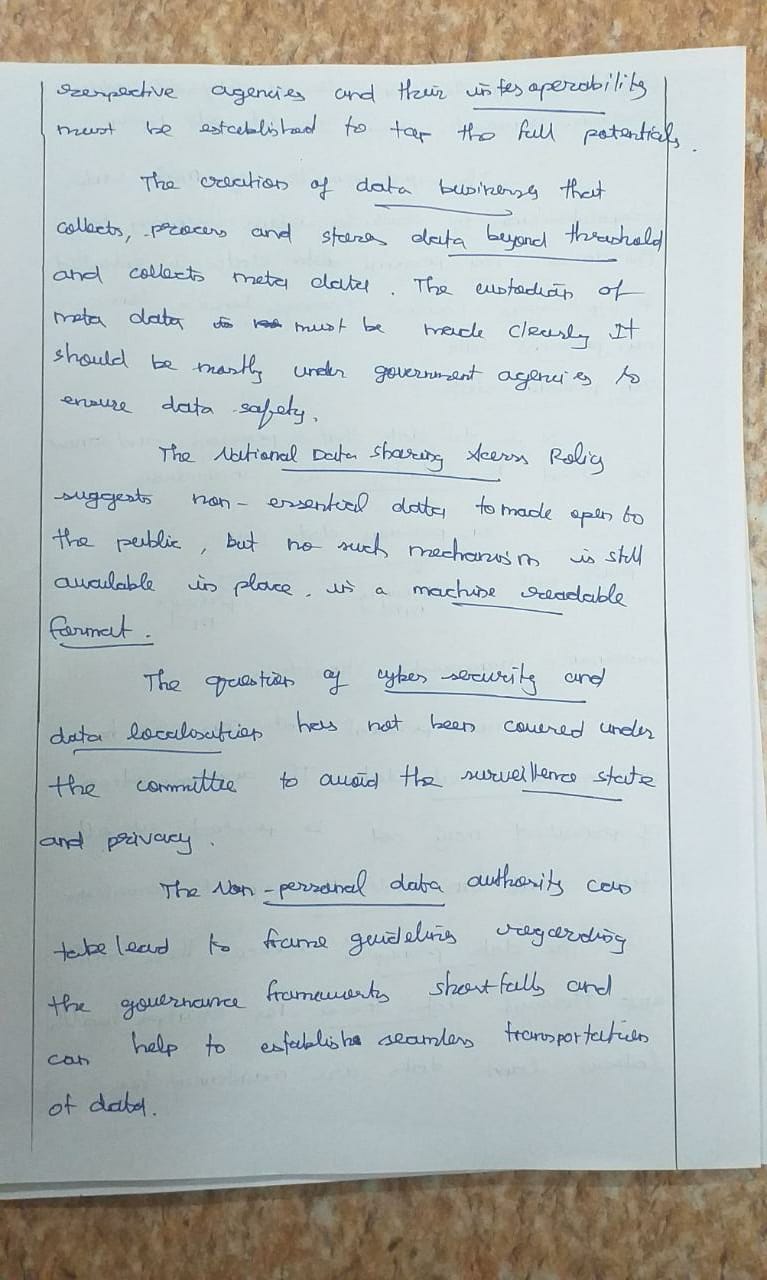 respective agencies and their interoperability
must be established to tap the full potentials.
The creation of data business that
collects, process and stores data beyond threshold
and collects meta data. The custodian of
meta data must be made clearly It
should be mostly under government agencies to
ensure data safety.
The National Data Sharing Access Policy
suggests non-essential data to made open to
the public, but no such mechanism is still
available in place, in a machine readable
format.
The question of cyber security and
data localisation has not been covered under
the committee to avoid the surveillence state
and privacy.
The Non-personal data authority can
take lead to frame guidelines regarding
the governance frameworks shortfalls and
can help to establish seamless transportation
of data.